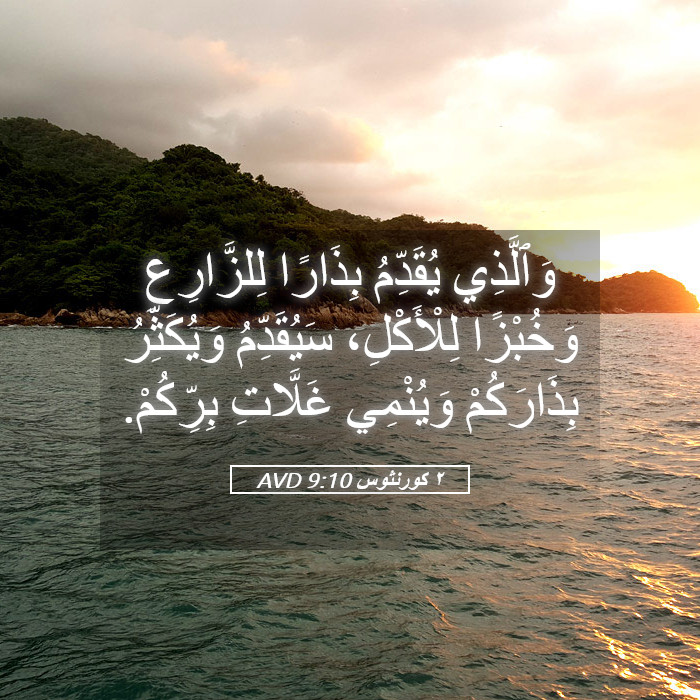 وَٱلَّذِي يُقَدِّمُ بِذَارًا لِلزَّارِعِ
وَخُبْزًا لِلْأَكْلِ، سَيُقَدِّمُ وَيُكَثِّرُ
بِذَارَكُمْ وَيُنْمِي غَلَّاتِ بِرِّكُمْ.
٢ كورنثوس 9:10 AVD